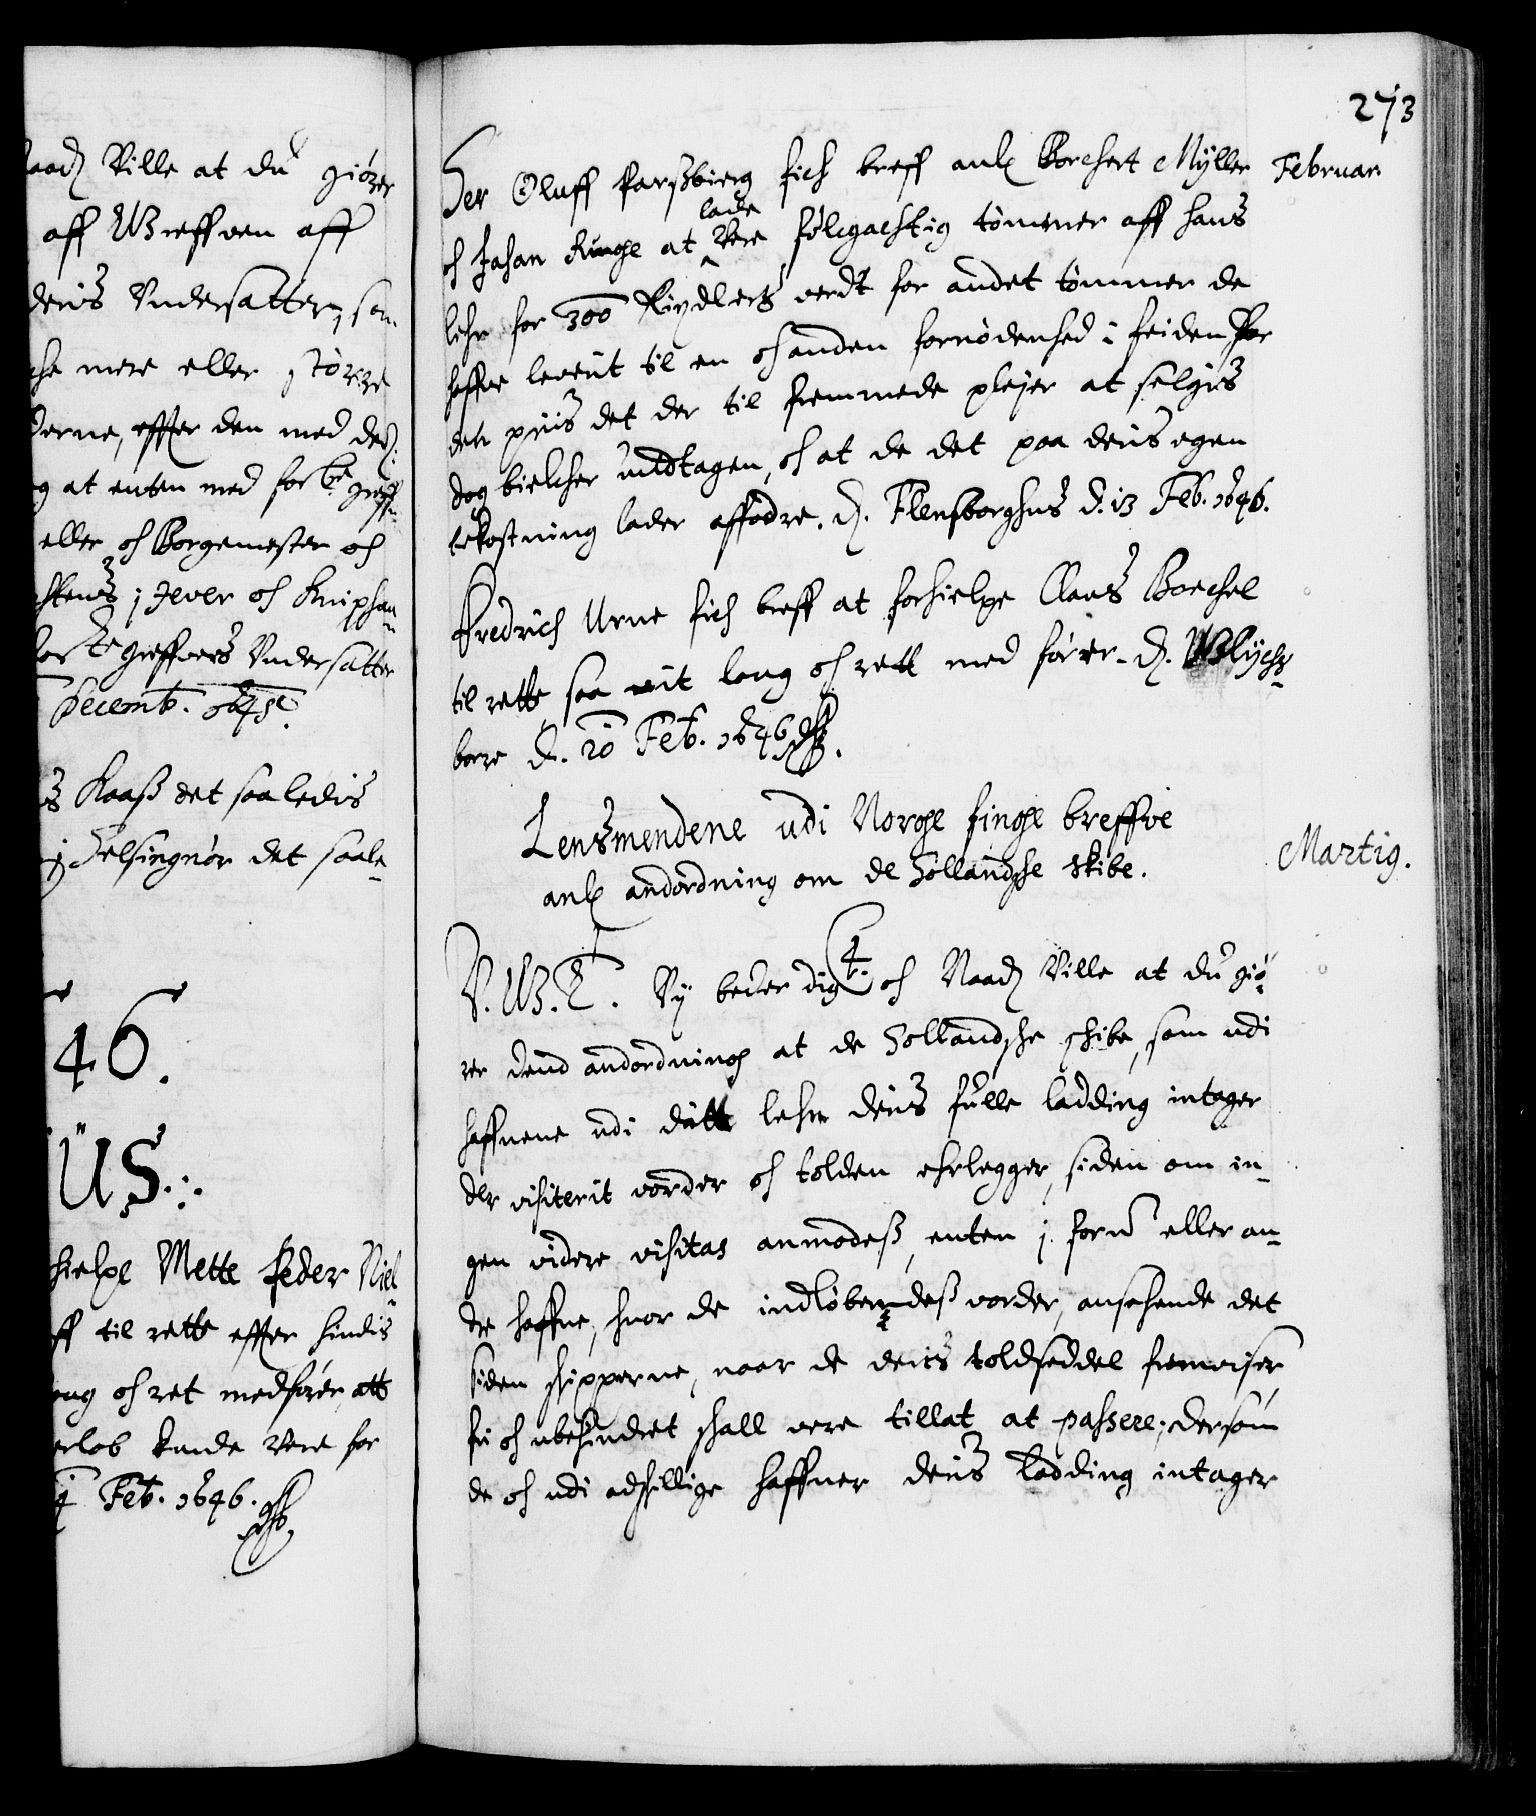 aad Ville at du giører
aff Greffven aff
deris Undersatter, som
che mere eller større
derne, effter den med
og at enten med forbte greff-
eller oc Borgemester oc
i Jever oc Kniphau-
greffvers Undersatter
Decemb. 1645.
s Kaass det saaledis
i Helsingnør det saale-
46.
US.:.
hielpe Mette Peder Niel-
ff til rette effter hindis
oug oc ret medfører, att
erlob kunde vere for
4 Feb. 1646.
273
Februar
Her Oluff Parssbierg fich breff anl Borchert Mÿller
oc Johan Runge at lade vere følgactig tømmer aff hans
lehn for 300 Rixdlers verdt for andet tømmer de
haffve leverit til en oc anden fornødenhed i feiden for
den priis det der til fremmede plejer at selgis
dog bielcher undtagen, oc at de det paa deris egen
bekostning lader affodre. D. Flensborghus d. 13 Feb. 1646.
Fredrich Urne fich breff at forhielpe Claus Boechel
til rette saa vit loug oc rett med fører. D. Glÿchs-
borre d. 20 Feb. 1646.
Martij.
Lensmendene udi Norge finge breffve
anl andordning om de Hollandsche skibe.
V. G. T. Vÿ beder dig oc Naad Ville at du giø-
rer dend andordning at de Hollandsche schibe, som udi
haffnene udi dit lehn deris fulle ladding intager
der visiterit vorder oc tolden erlegger, siden om in-
gen videre visitas anmodess, enten i forn eller an-
dre haffne, hvor de indløbendess vorder, ansehende det
siden schipperne, naar de deris toldseddel fremviser
fri oc ubehindret schall vere tillat at passere; dersom
de oc udi adskillige haffner deris ladding intager